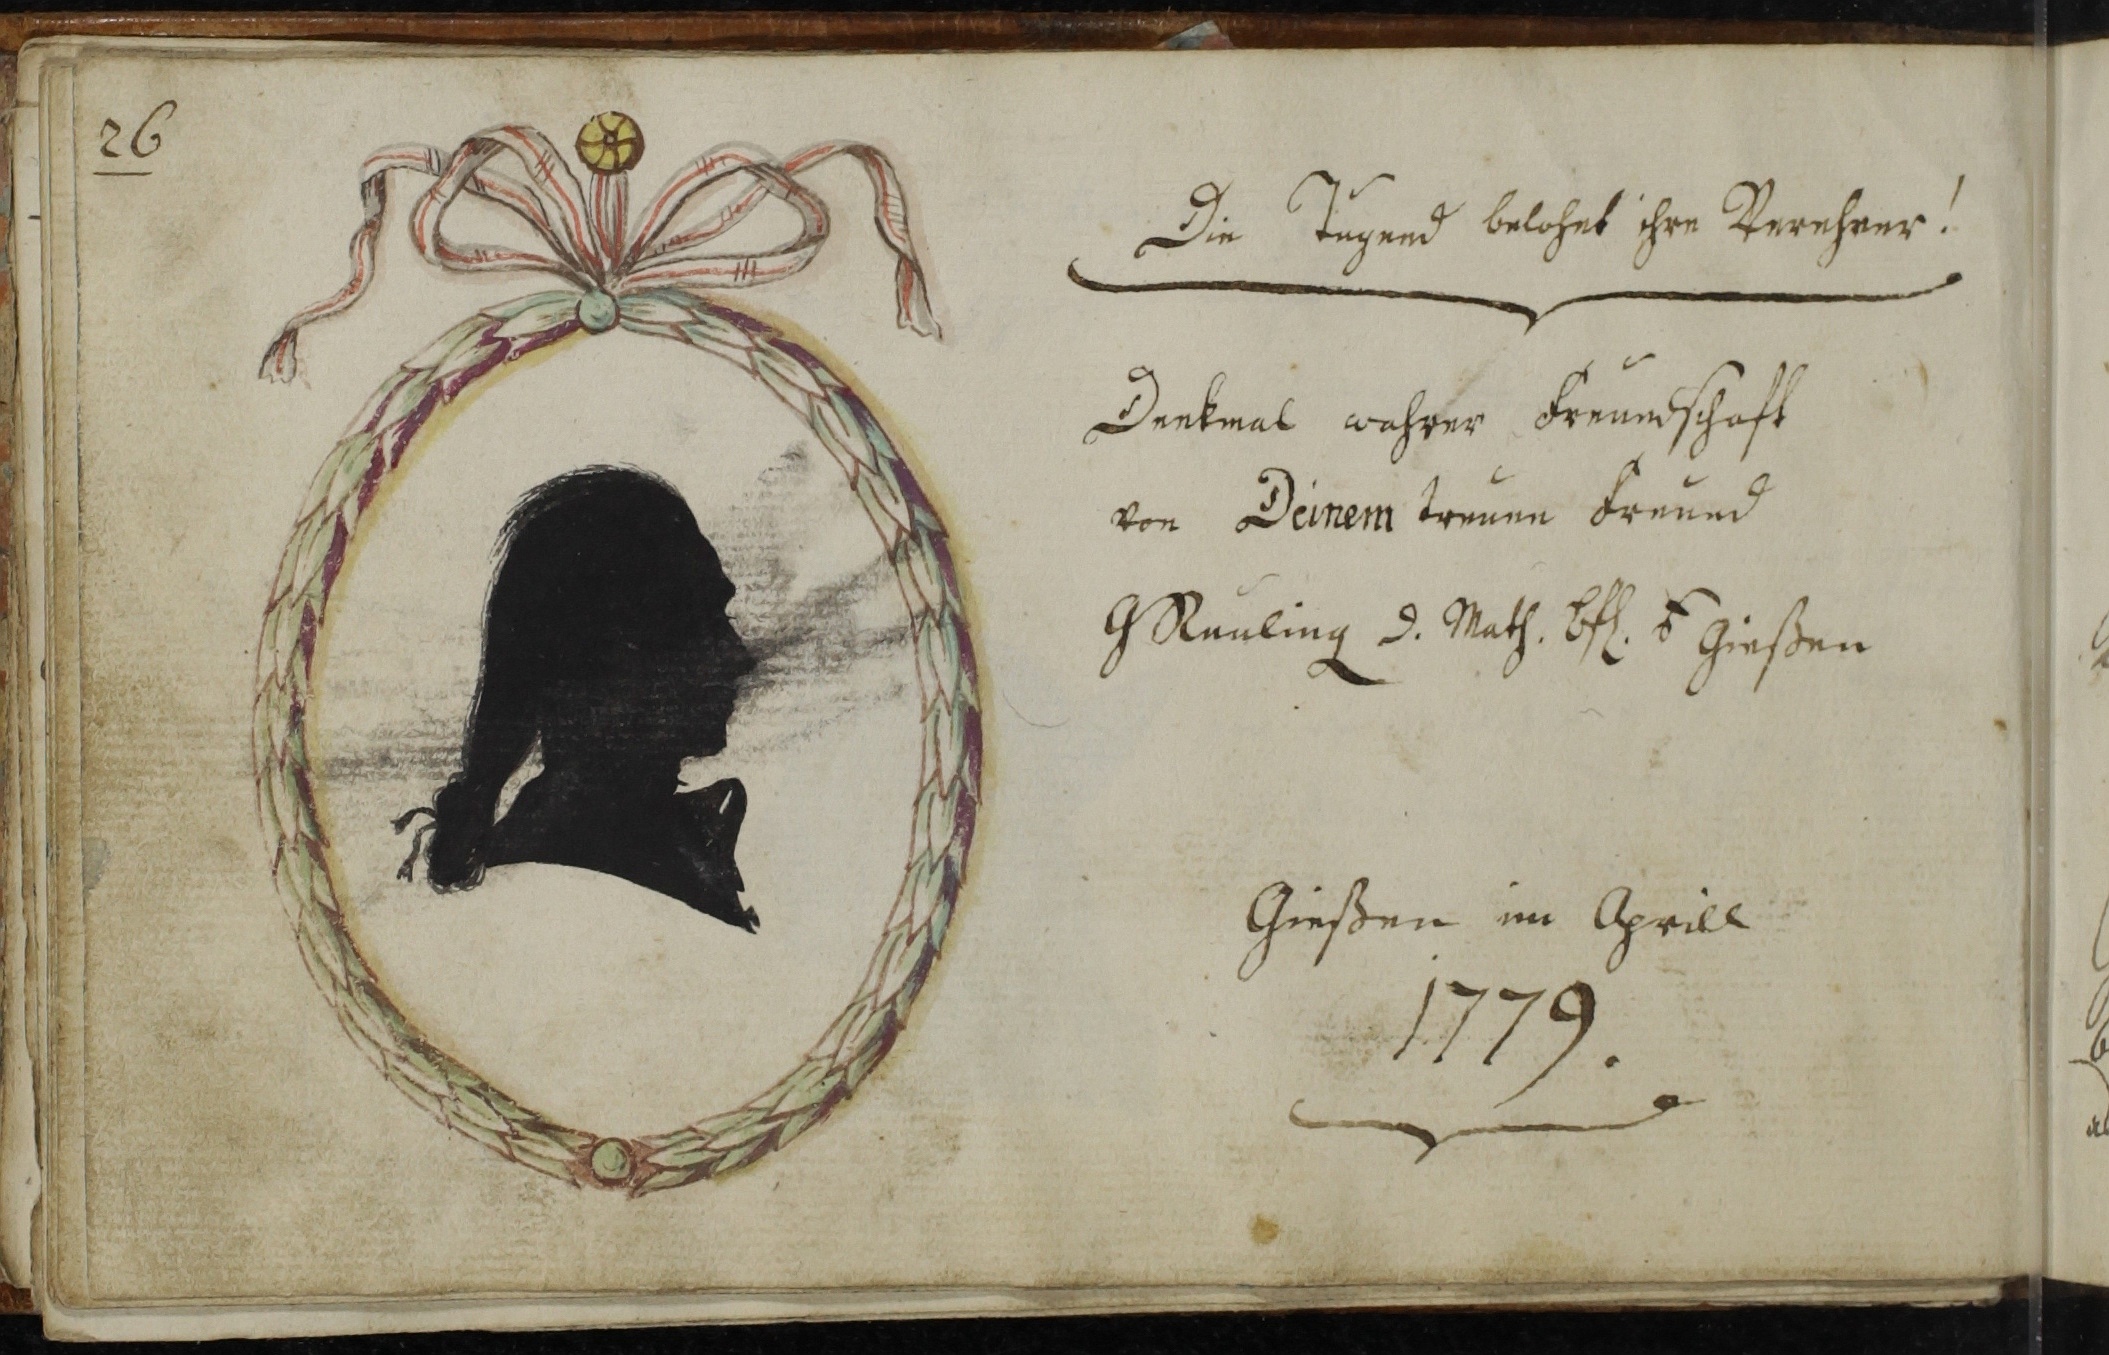 26
Die Tugend belohnt ihre Verehrer!
Denkmal wahrer Freundschaft
von Deinem treuen Freund
G Ruuling d. Math. Bfl. Gießen
Gießen im Aprill
1779.